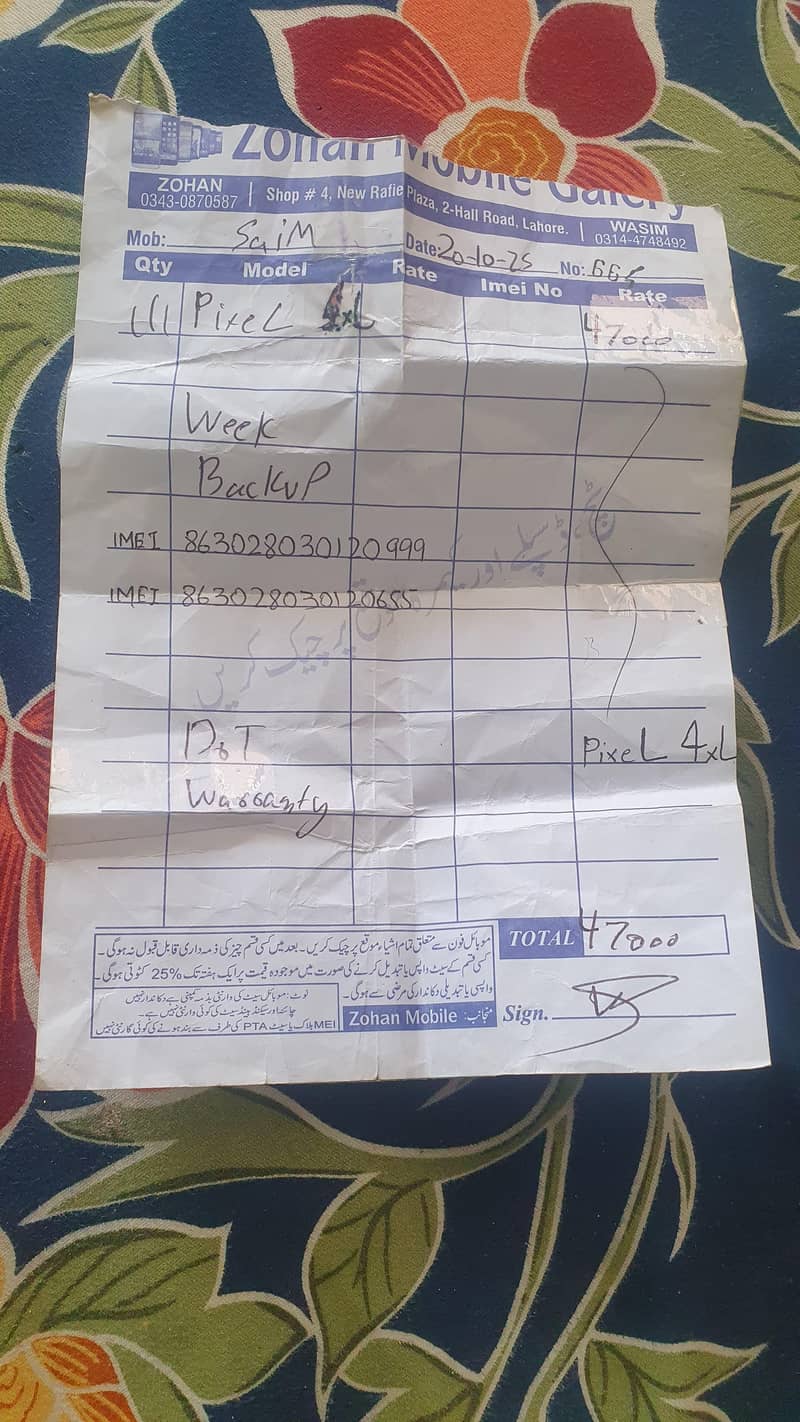 Zohan Mobile Galery
ZOHAN
0343-0870587
Shop # 4, New Rafie Plaza, 2-Hall Road, Lahore.
WASIM
0314-4748492
Mob: SaiM Date: 20-10-25 No: 665
Qty Model Rate Imei No Rate
Pixel 4xL 47000
Week
Backup
IMEI 863028030120999
IMEI 863028030120655
DoT Pixel 4xL
Warranty
TOTAL 47000
موبائل فون سے متعلق تمام اشیاء موقع پر چیک کریں۔ بعد میں کسی قسم چیز کی ذمہ داری قابل قبول نہ ہوگی۔
کسی قسم کے سیٹ واپس یا تبدیل کرنے کی صورت میں موجودہ قیمت پر ایک ہفتہ تک 25% کٹوتی ہوگی۔
واپسی یا تبدیلی دکاندار کی مرضی سے ہوگی۔
نوٹ: موبائل سیٹ کی وارنٹی بذمہ کمپنی ہے دکاندار نہیں
چائنہ اور سیکنڈ ہینڈ سیٹ کی کوئی وارنٹی نہیں ہے۔
IMEI بلاک یا سیٹ PTA کی طرف سے بند ہونے کی کوئی گارنٹی نہیں
منجانب: Zohan Mobile
Sign.